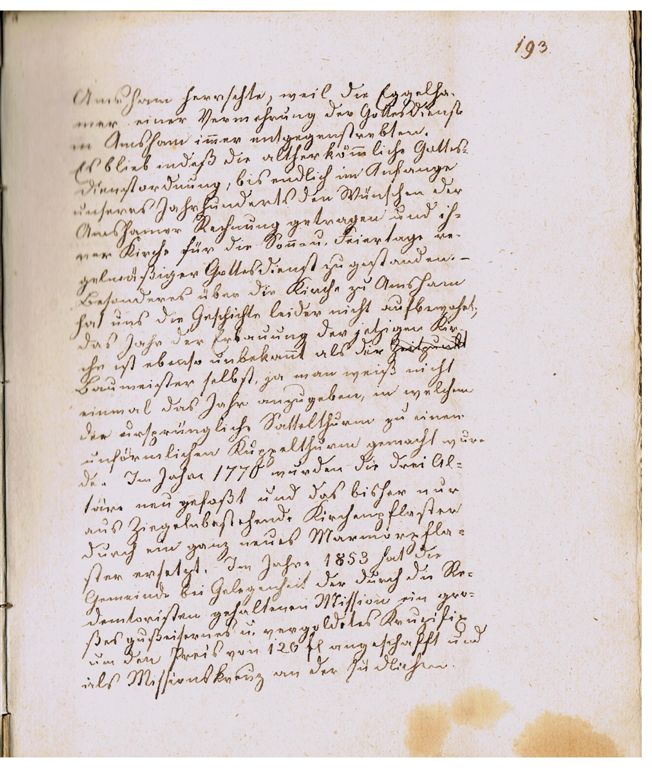 193
Amsham herrschte, weil die Eggelha-
mer einer Vermehrung der Gottesdienste
in Amsham im̄er entgegenstrebten.
Es blieb indeß die altherköm̄liche Gottes-
dienstordnung, bis endlich im Anfange
unseres Jahrhunderts den Wünschen der
Amshamer Rechnung getragen und ih-
rer Kirche für die Son̄ u. Feiertage re-
gelmäßiger Gottesdienst zugestanden. –
Besonderes über die Kirche zu Amsham
hat uns die Geschichte leider nicht aufbewahrt;
das Jahr der Erbauung der jetzigen Kir-
che ist ebenso unbekan̄t als der Zeitpunkt
Baumeister selbst, ja man weiß nicht
einmal das Jahr anzugeben, in welchem
der ursprüngliche Sattelthurm zu einem
unförmlichen Kuppelthurm gemacht wur-
de. Im Jahre 1770 wurden die drei Al-
täre neu gefaßt und das bisher nur
aus Ziegeln bestehende Kirchenpflaster
durch ein ganz neues Marmorpfla-
ster ersetzt. Im Jahre 1853 hat die
Gemeinde bei Gelegenheit der durch die Re-
demtoristen gehaltenen Mission ein gro-
ßes gußeisernes u. vergoldetes Kruzifix
um den Preis von 120 fl angeschafft und
als Missionskreuz an der südlichen